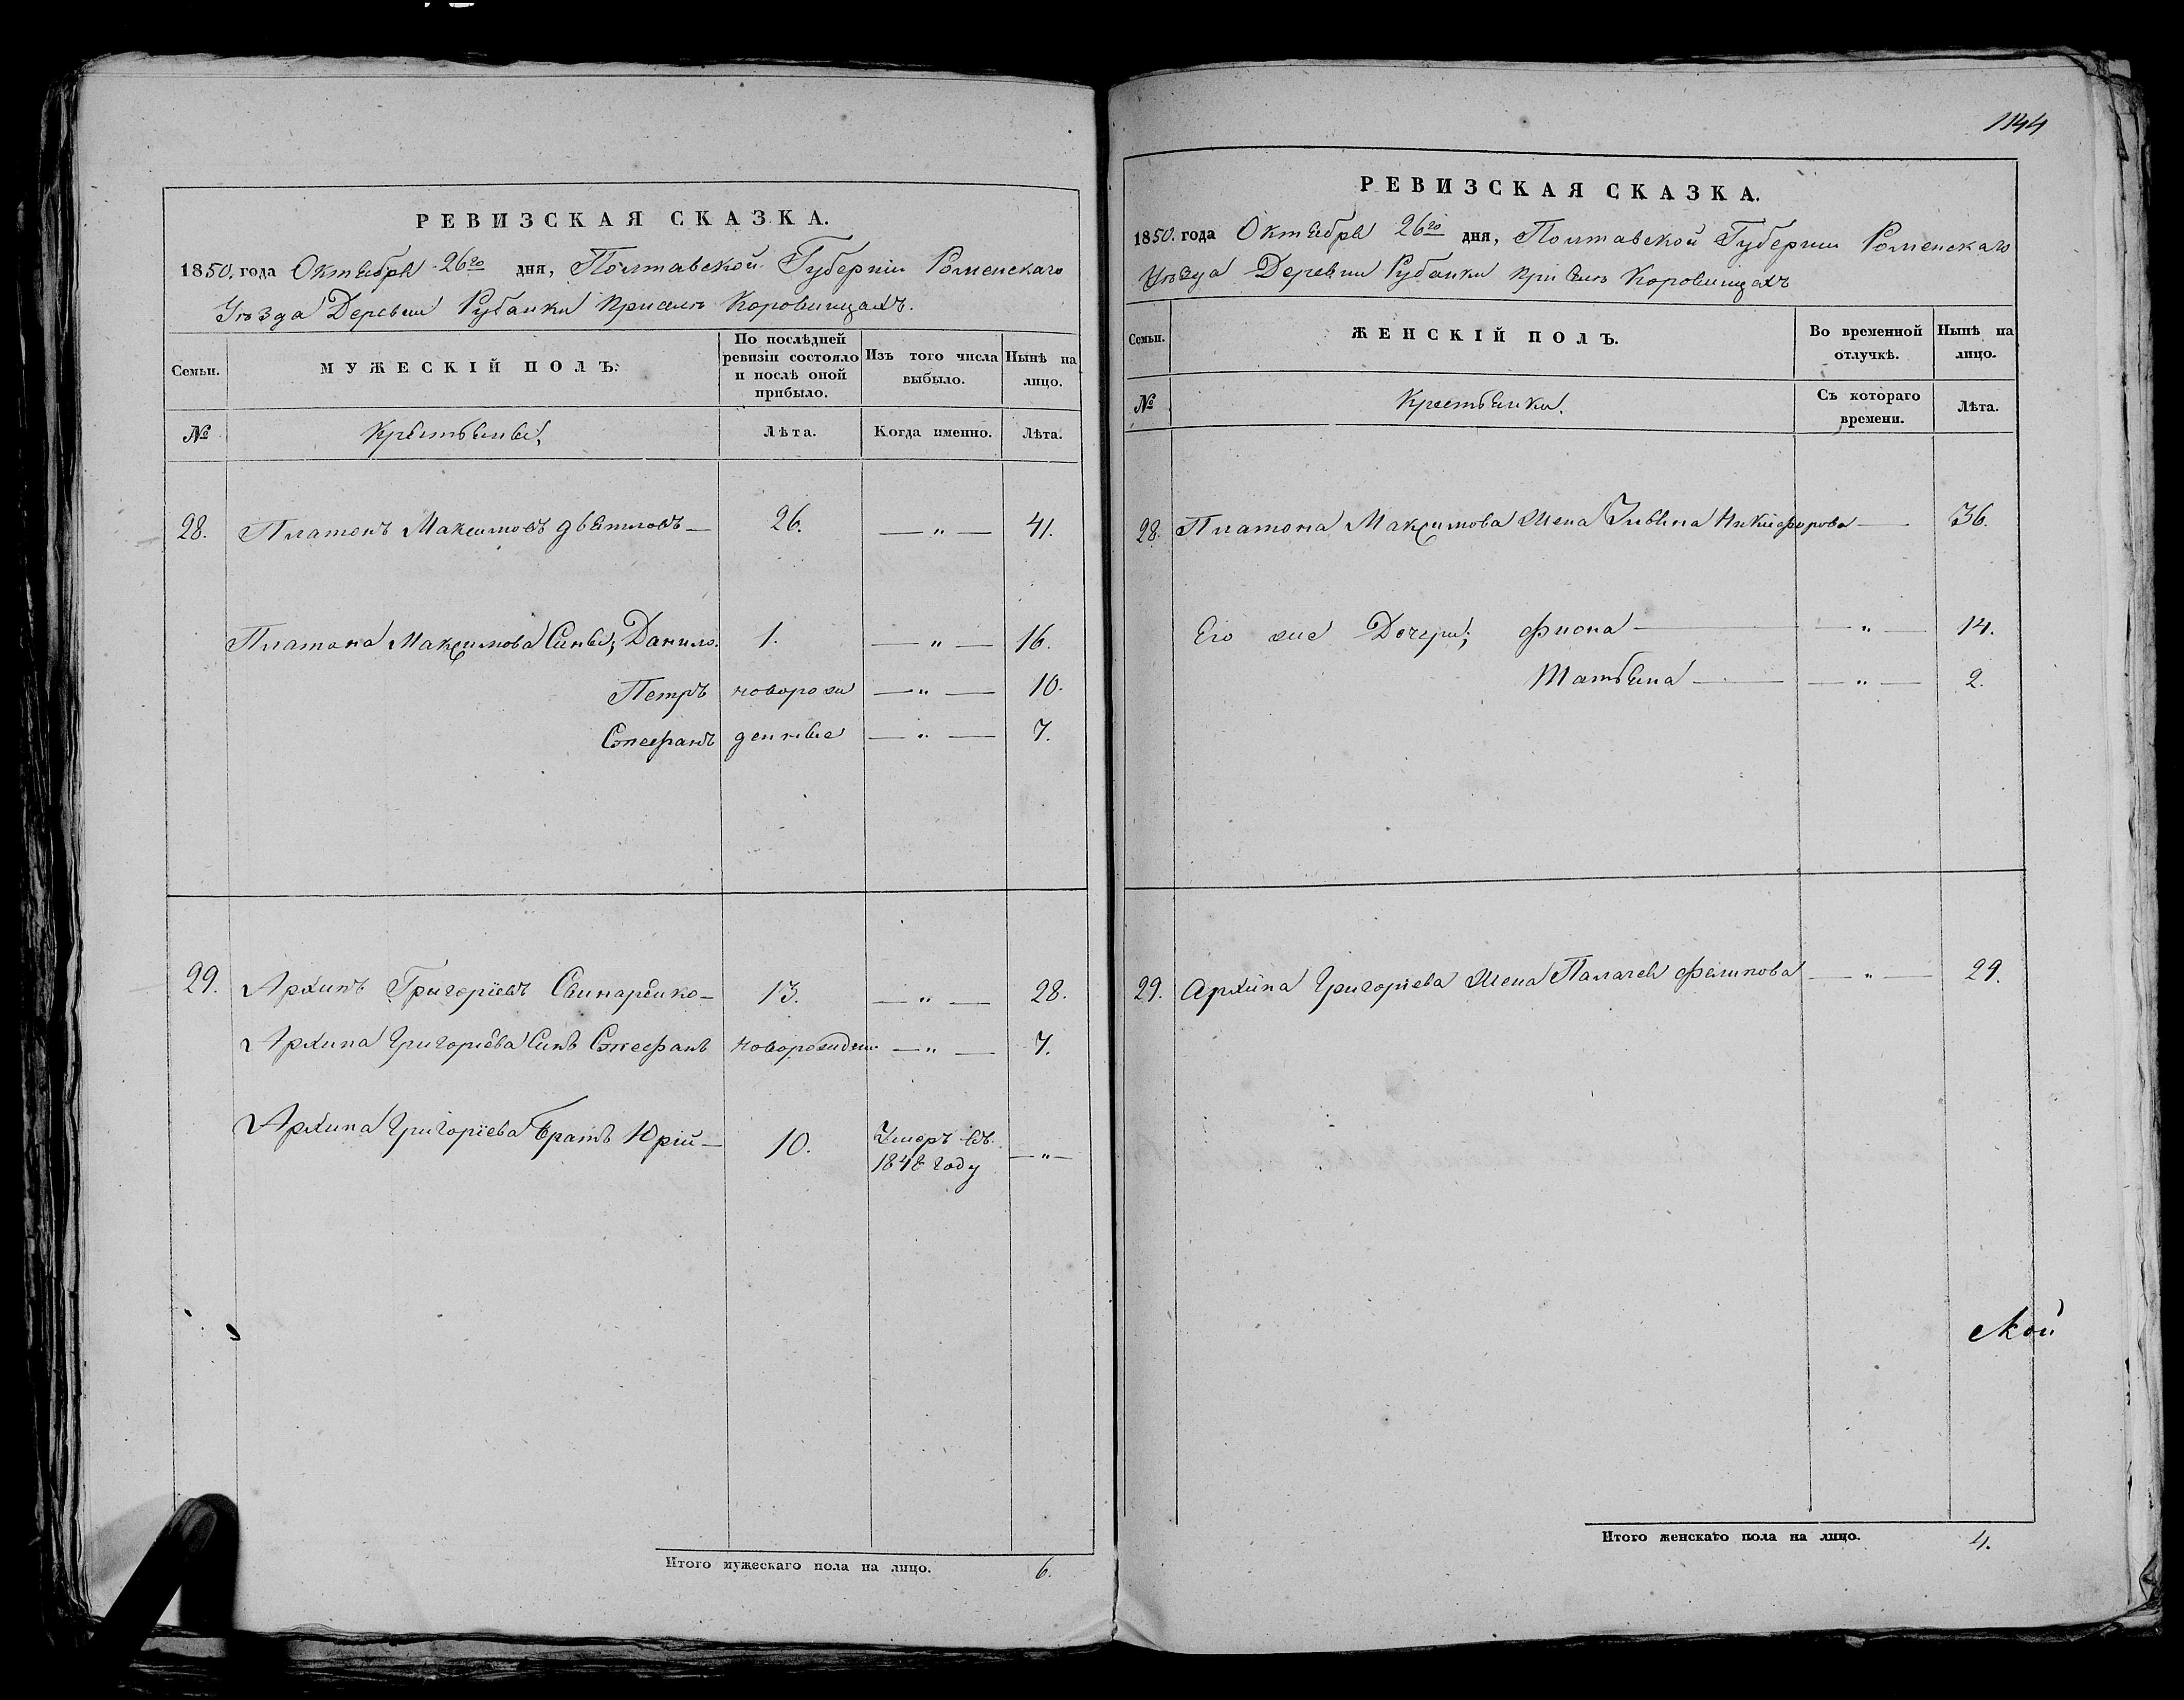 РЕВИЗСКАЯ СКАЗКА.
1850. года Октября 26го дня, Полтавской Губерніи Роменскаго
Уѣзда Деревни Рубанки при селѣ Коровинцахъ.
Семьи.
МУЖЕСКІЙ ПОЛЪ:
По послѣдней ревизіи состояло и послѣ оной прибыло.
Изъ того числа выбыло.
Нынѣ на лицо.
№
Крестьяне,
Лѣта.
Когда именно.
Лѣта.
28. Платонъ Максимовъ — 26. — „ — 41.
Платона Максимова Сины; Данило. 1. — „ — 16.
Петръ новорож — „ — 10.
Стефанъ денные — „ — 7.
29. Архипъ Григоріевъ Свинаренко — 13. — „ — 28.
Архипа Григоріева Синъ Стефанъ новорожден. — „ — 7.
Архипа Григоріева Братъ Юрій — 10. Умеръ въ — „ —
1848 году
Итого мужескаго пола на лицо. 6.
1144
РЕВИЗСКАЯ СКАЗКА.
1850. года Октября 26го дня, Полтавской Губерніи Роменскаго
Уѣзда Деревни Рубанки при селѣ Коровинцахъ
Семьи.
ЖЕНСКІЙ ПОЛЪ.
Во временной отлучкѣ.
Нынѣ на лицо.
№
Крестьянки.
Съ котораго времени.
Лѣта.
28. Платона Максимова Жена Никифорова — 36.
Его же Дочери; Фиона — — „ — 14.
Татьяна — — „ — 2.
29. Архипа Григоріева Жена Палагея Филипова — „ — 29.
Итого женскаго пола на лицо. 4.